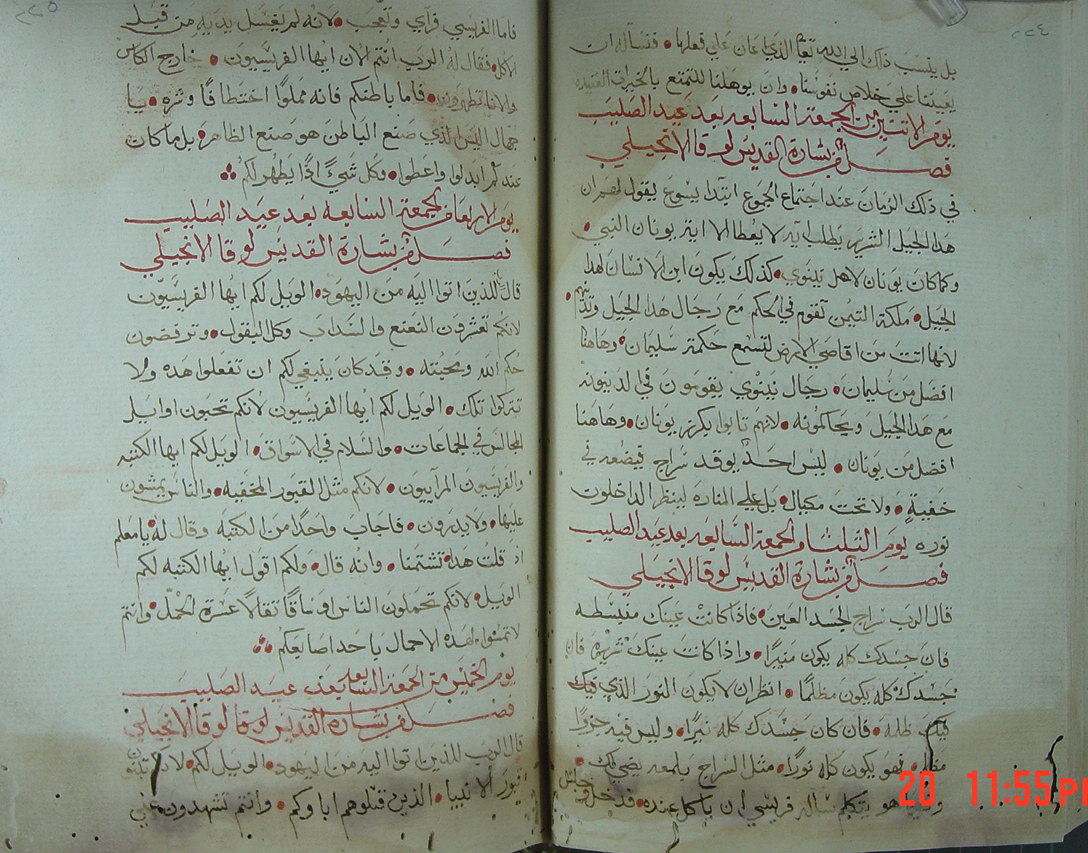 ٢٢٤
بل ينسب ذلك الي الله تعا الذي اعان علي فعلها • فنساله ان
يعيننا علي خلاص نفوسنا • وان يوهلنا للتمتع بالخيرات
يوم الاتنين من الجمعة السابعه بعد عيد الصليب
فصل من بشارة القديس لوقا الانجيلي
في ذلك الزمان عند اجتماع الجموع ابتدا يسوع يقول ان
هدا الجيل الشرير يطلب ايه لا يعطا الا اية يونان النبي •
وكما كان يونان لاهل نينوي • كذلك يكون ابن الانسان لهدا
الجيل • ملكة التيمن تقوم في الحكم مع رجال هدا الجيل وتدينهم •
لانها اتت من اقاصي الارض لتسمع حكمة سليمان • وهاهنا
افضل من سليمان • رجال نينوي يقومون في الدينونه
مع هدا الجيل ويحاكمونه • لانهم تابوا بكرز يونان • وهاهنا
افضل من يونان • ليس احد يوقد سراج فيضعه في
خفية • ولا تحت مكيال • بل علي المناره لينظر الداخلون
نوره يوم التلتا من الجمعة السابعه بعد عيد الصليب
فصل من بشارة القديس لوقا الانجيلي
قال الرب سراج الجسد العين • فاذا كانت عينك منبسطه
فان جسدك كله يكون منيرا • واذا كانت عينك شريره فان
جسدك كله يكون مظلما • انظر ان لا يكون النور الذي فيك
ظلمه • فان كان جسدك كله نيرا • وليس فيه جزوا
مظلم • فهو يكون كله نورا • مثل السراج بلمعه يضي لك •
وفيما هو يتكلم ساله فريسي ان ياكل عنده • فدخل
٢٢٥
فاما الفريسي فراي وتعجب • لانه لم يغتسل يديه من قبل
الاكل • فقال له الرب انتم الان ايها الفريسيون • خارج الكاس
والانا تطهرونه • فاما باطنكم فانه مملوا اختطافا وشره • يا
جهال اليس الذي صنع الباطن هو صنع الظاهر • بل ما كان
عندكم ابدلوا واعطوا • وكل شي اذا يطهر لكم
يوم الاربعا من الجمعة السابعه بعد عيد الصليب
فصل من بشارة القديس لوقا الانجيلي
قال للذين اتوا اليه من اليهود • الويل لكم ايها الفريسيون
لانكم تعشرون النعنع والسداب وكل البقول • وترفضون
حكم الله ومحبته • وقد كان ينبغي لكم ان تفعلوا هده ولا
تتركوا تلك • الويل لكم ايها الفريسيون لانكم تحبون اوايل
المجالس في الجماعات • والسلام في الاسواق • الويل لكم ايها الكتبه
والفريسيون المرآييون • لانكم مثل القبور المخفيه • والناس يمشون
عليها • ولا يدرون • فاجاب واحدا من الكتبه وقال له • يا معلم
اذ قلت هدا تشتمنا • وانه قال • ولكم اقول ايها الكتبه لكم
الويل • لانكم تحملون الناس اوساقا ثقالا عسرة الحمل • وانتم
لا تمسوا لهده الاحمال باحدا اصابعكم
يوم الخميس من الجمعة السابعه بعد عيد الصليب
فصل من بشارة القديس لوقا الانجيلي
قال الرب للذين اتوا اليه من اليهود • الويل لكم • لانكم تبنون
قبور الانبيا • الذين قتلوهم اباوكم • وانتم تشهدون علي
20 11:55 PM